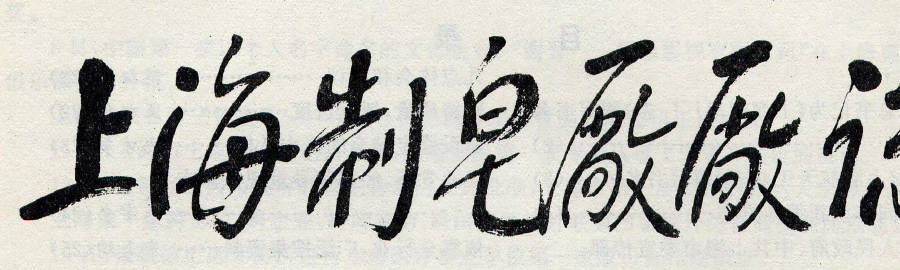 上海制皂厰厰